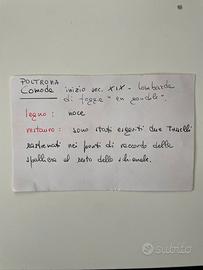 POLTRONA
Comoda inizio sec. XIX - lombarda
di foggia "en gondole".
legno: noce
restauro: sono stati eseguiti due Tasselli
nei punti di raccordo della
spalliera al resto dello schienale.
subito